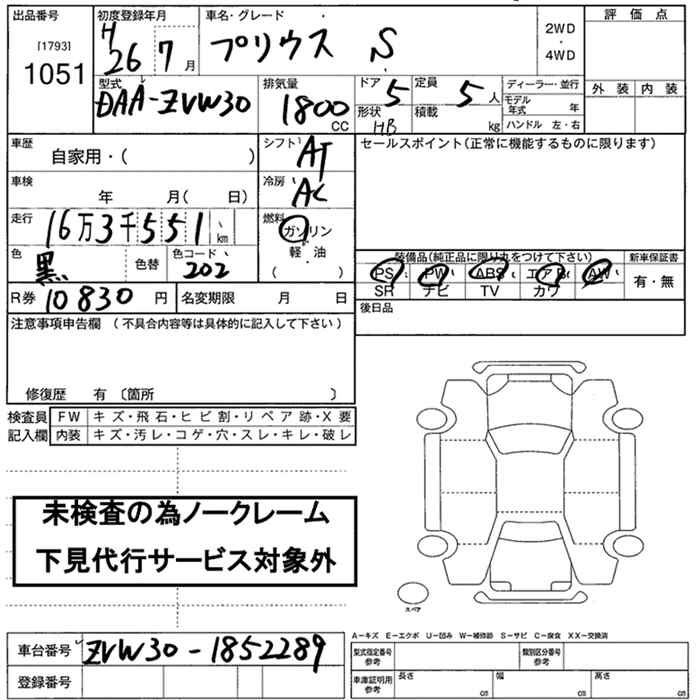 出品番号 初度登録年月 車名・グレード 評価点
[1793] 1051 H 26 7月 プリウス S 2WD・4WD
外装 内装
型式 DAA-ZVW30 排気量 1800 CC ドア 5 定員 5人 ディーラー・並行
形状 HB 積載 kg モデル年式 年
ハンドル 左・右
車歴 自家用・( ) シフト AT セールスポイント(正常に機能するものに限ります)
車検 年 月( 日) 冷房 AC
走行 16万3千551km 燃料 ガソリン 軽・油 ( )
色 黒 色替 色コード 202
装備品(純品に限り丸をつけて下さい) 新車保証書
PS PW ABS エアB AW 有・無
SR ナビ TV カワ
R券 10830円 名変期限 月 日 後日品
注意事項申告欄 (不具合内容等は具体的に記入して下さい)
修復歴 有 〔箇所 〕
検査員 FW キズ・飛石・ヒビ割・リペア跡・X要
記入欄 内装 キズ・汚レ・コゲ・穴・スレ・キレ・破レ
未検査の為ノークレーム
下見代行サービス対象外
スペア
A-キズ E-エクボ U-凹み W-補修跡 S-サビ C-腐食 XX-交換済
車台番号 ZVW30-1852289 型式指定番号 参考 類別区分番号 参考
登録番号 車庫証明用 参考 長さ cm 幅 cm 高さ cm